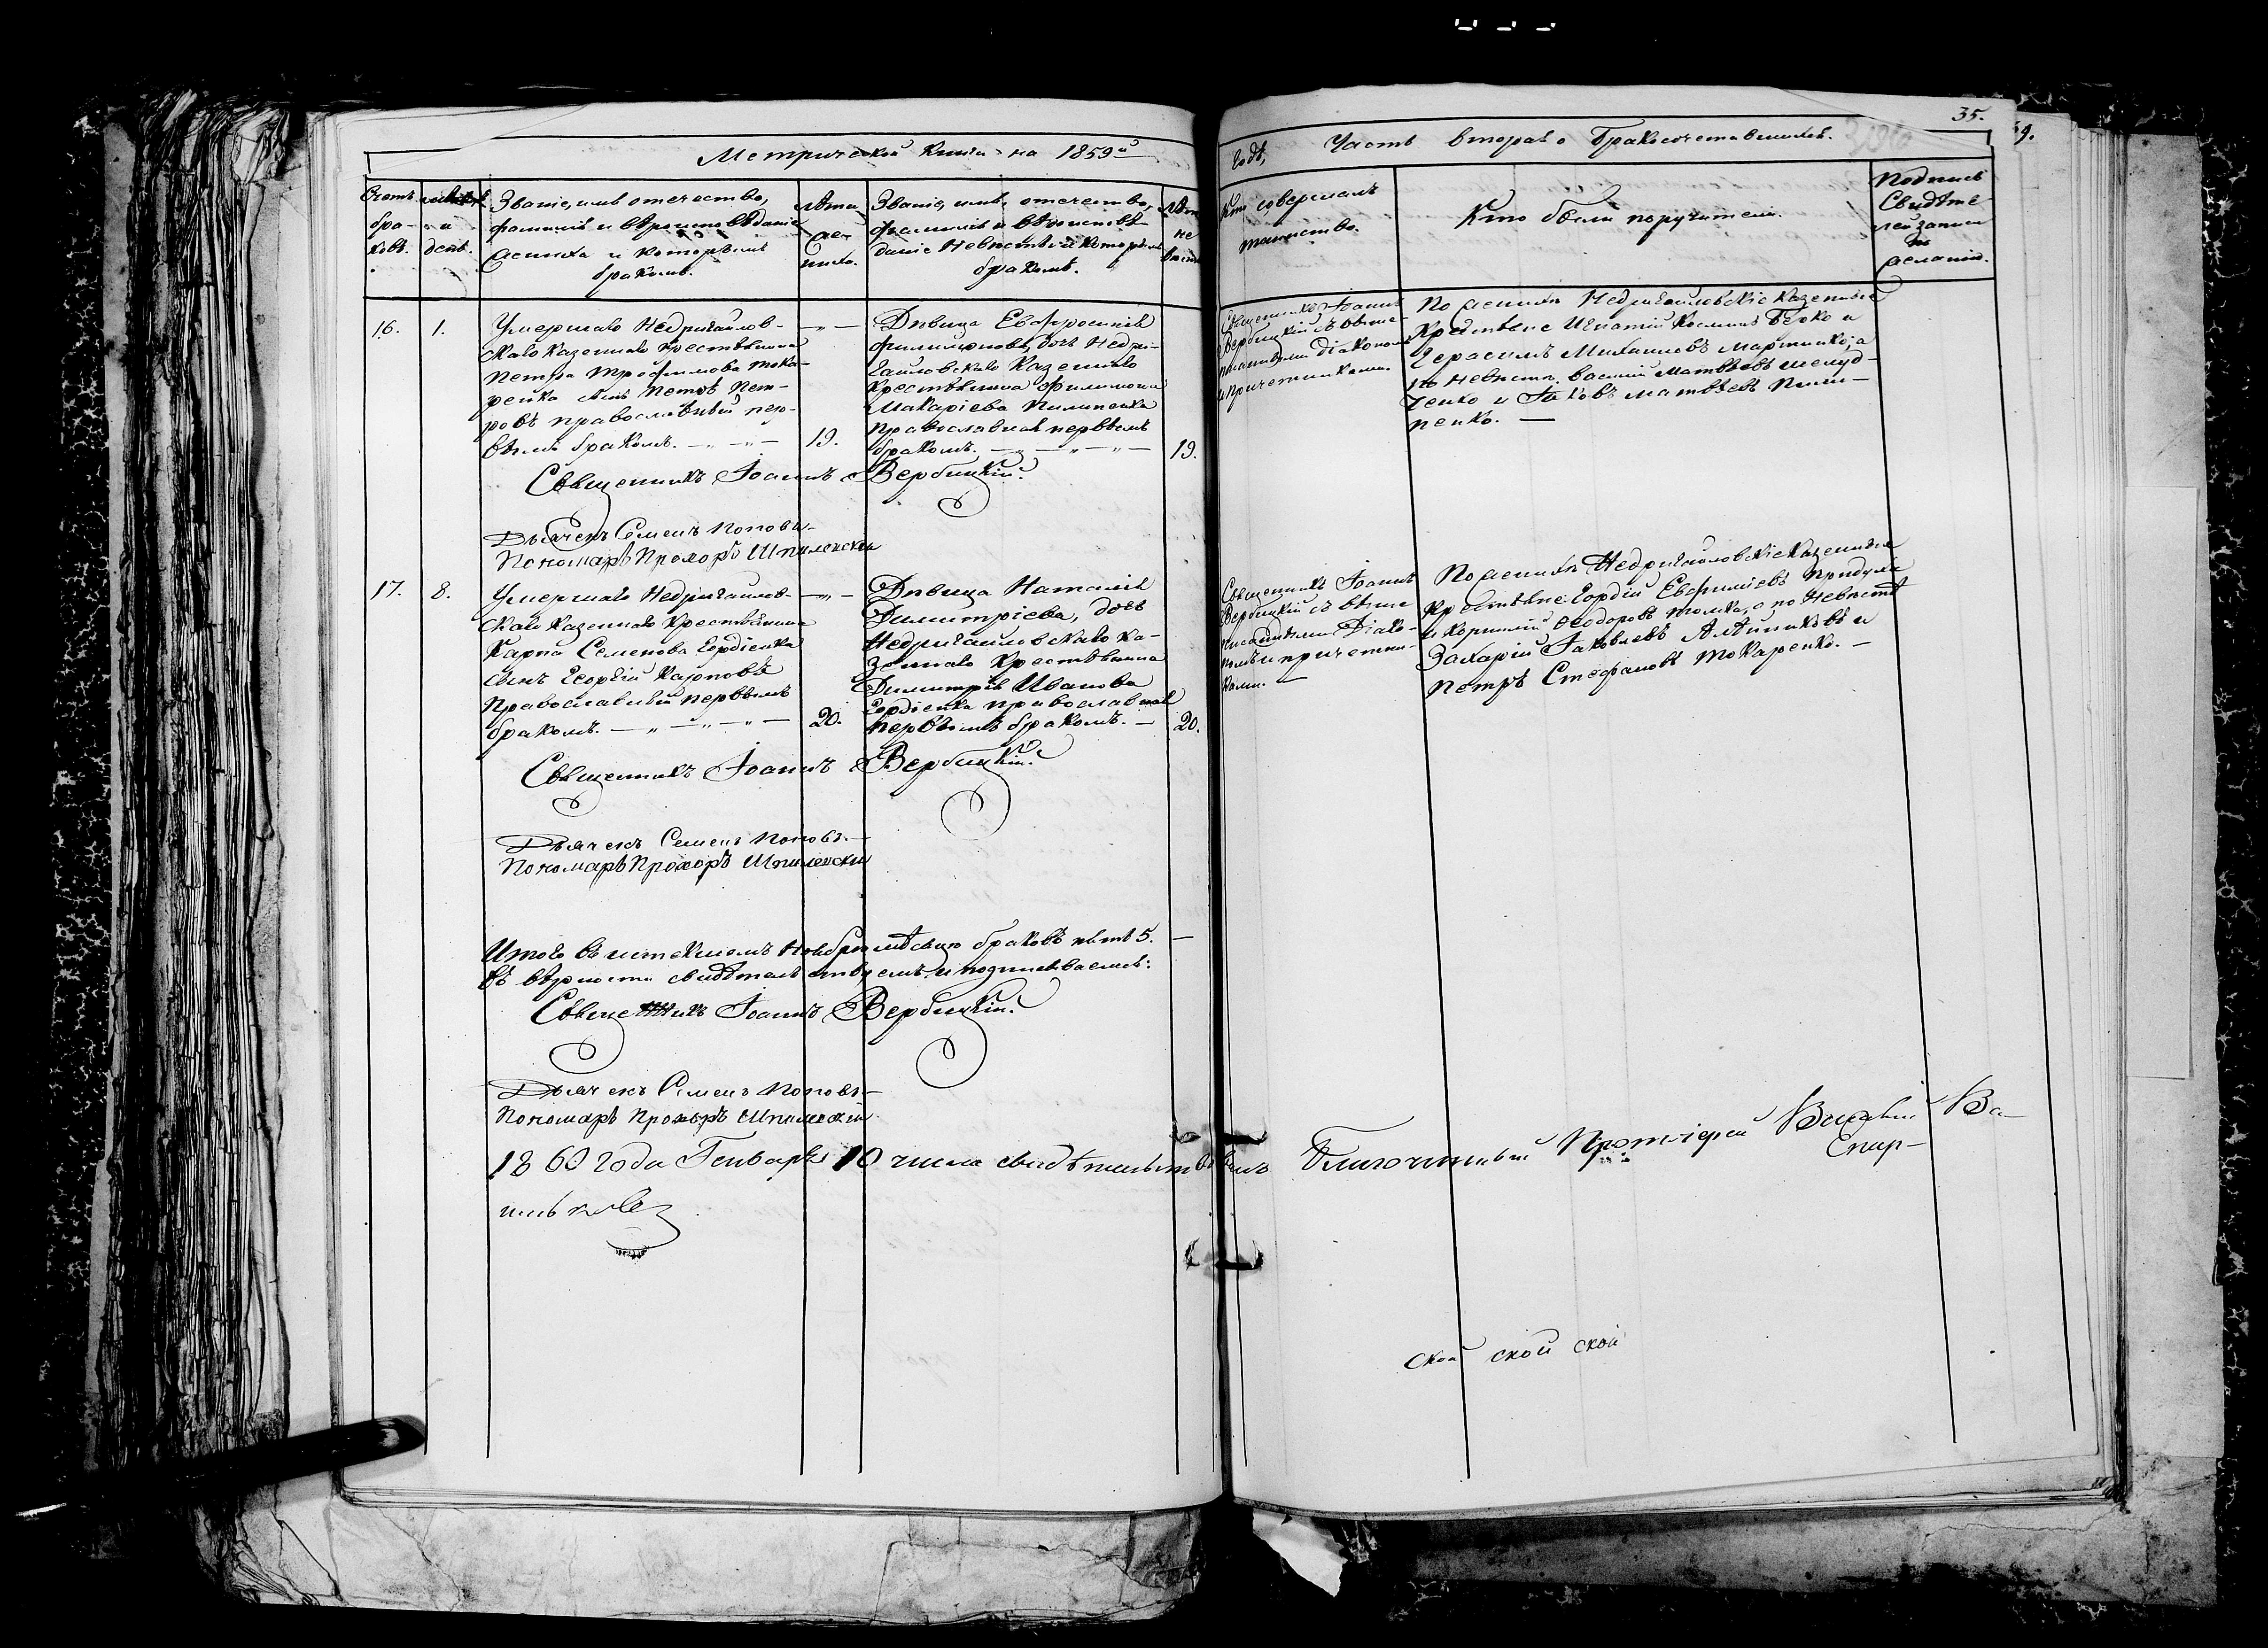 35.
Метрической книги на 1859й
Годъ, Часть вторая о Бракосочетавшихся.
Счетъ бра-ковъ.
Мѣсяцъ и день.
Званіе, имя, отечество,
фамилія и вѣроисповѣданіе
жениха и которымъ
бракомъ.
Лѣта
же-
ниха.
Званіе, имя, отечество,
фамилія и вѣроисповѣ-
даніе невѣсты и которымъ
бракомъ.
Лѣта
не
вѣсты
Кто совершалъ
таинство.
Кто были поручители.
Подпись
Свидѣте-
лей записи
по
желанію.
16. 1.
Умершаго Недригайлов-
скаго казеннаго крестьянина
Петра Трофимова Тока-
ренка сынъ Петръ Пет-
ровъ православный пер-
вымъ бракомъ. 19.
Дѣвица Евфросинія
Филимонова, дочь Недри-
гайловскаго казеннаго
крестьянина Филимона
Макаріева Пилипенка
православная первымъ
бракомъ. 19.
Священникъ Іоаннъ
Вербицкій съ выше-
писанными діакономъ
и причетниками.
По женихѣ Недригайловскіе казенные
крестьяне Игнатій Косминъ Бѣлко и
Герасимъ Михаиловъ Мартинко, а
по невѣстѣ Василій Матвѣевъ Шелуд-
ченко и Яковъ Матвѣевъ Пили-
пенко.
Священникъ Іоаннъ Вербицкій.
Дьячекъ Семенъ Поповъ
Пономарь Прохоръ Шпилевскій
17. 8.
Умершаго Недригайлов-
скаго казеннаго крестьянина
Карпа Семенова Гордіенка
сынъ Георгій Карповъ
православный первымъ
бракомъ. 20.
Дѣвица Наталія
Димитріева, дочь
Недригайловскаго ка-
зеннаго крестьянина
Димитрія Иванова
Гордіенка православная
первымъ бракомъ. 20.
Священникъ Іоаннъ
Вербицкій съ выше
писанными Діако-
номъ и причетни-
ками.
По женихѣ Недригайловскіе казенные
крестьяне: Гордій Евфиміевъ Придула
и Корнилій Ѳеодоровъ Толка, а по невѣстѣ
Захарій Яковлевъ Алѣйниковъ и
Петръ Стефановъ Токаренко.
Священникъ Іоаннъ Вербицкій.
Дьячекъ Семенъ Поповъ.
Пономарь Прохоръ Шпилевскій
Итого въ истекшемъ Ноябрѣ мѣсяцѣ браковъ пять 5.
Въ вѣрности свидѣтельствуемъ и подписываемся:
Священникъ Іоаннъ Вербицкій.
Дьячекъ Семенъ Поповъ
Пономарь Прохоръ Шпилевскій
1860 года Генваря 10 числа свидѣтельствовалъ Благочинный Протоіерей Василій Ва-
сильковъ
Епар-
ской ской ской